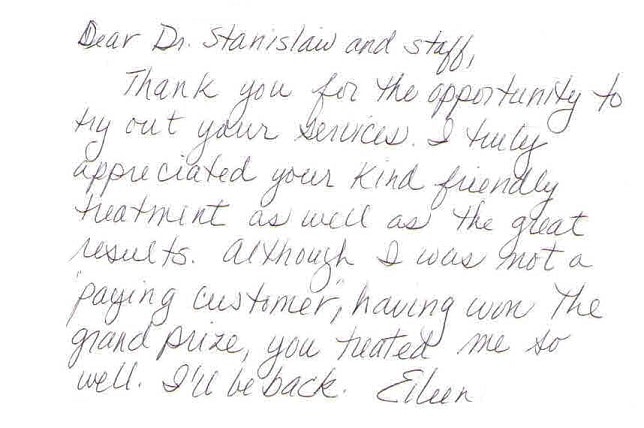 Dear Dr. Stanislaw and staff,
Thank you for the opportunity to
try out your services. I truly
appreciated your kind friendly
treatment as well as the great
results. Although I was not a
"paying customer", having won the
grand prize, you treated me so
well. I'll be back. Eileen